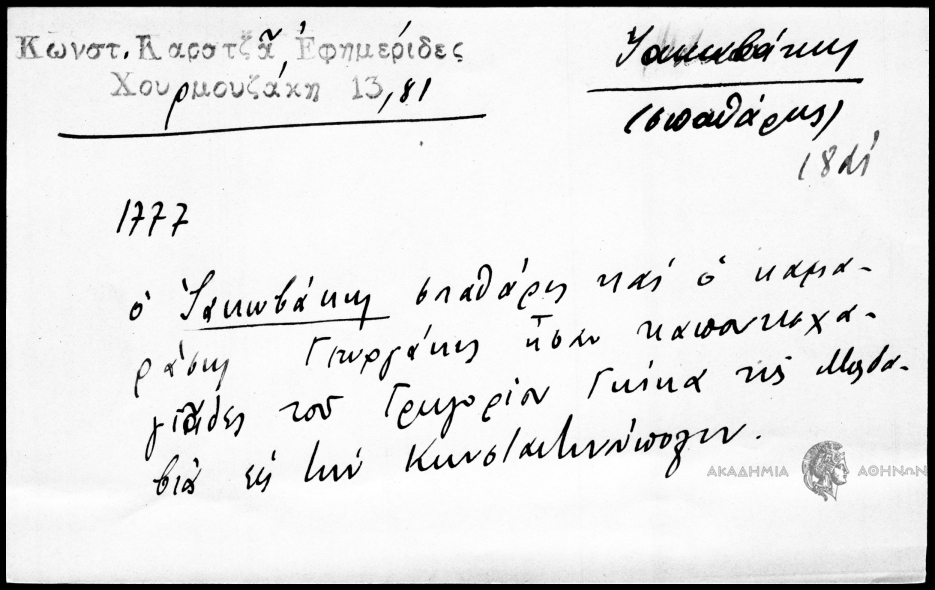 Κωνστ. Καρατζᾶ, Ἐφημερίδες
Χουρμουζάκη 13, 81
Ἰακωβάκης
(σπαθάρης)
18
1777
ὁ Ἰακωβάκης σπαθάρης καὶ ὁ καμα-
ράσης Γεωργάκης ἦσαν καπουκεχα-
γιάδες τοῦ Γρηγορίου Γκίκα τῆς Μολδα-
βιᾶς εἰς τὴν Κωνσταντινούπολιν.
ΑΚΑΔΗΜΙΑ ΑΘΗΝΩΝ